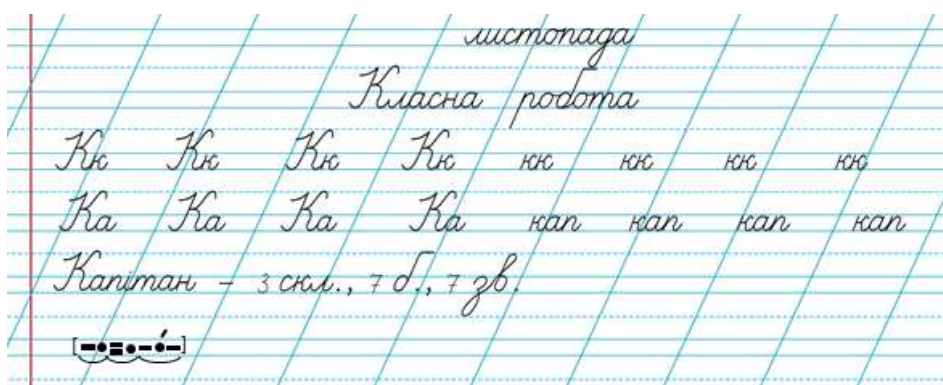 листопада
Класна робота
Кк Кк Кк Кк кк кк кк кк
Ка Ка Ка Ка кап кап кап кап
Капітан – 3 скл., 7 б., 7 зв.
[–•=•–•́–]